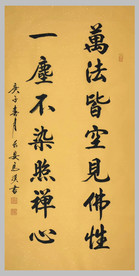 萬法皆空見佛性
一塵不染照禪心
庚子春月